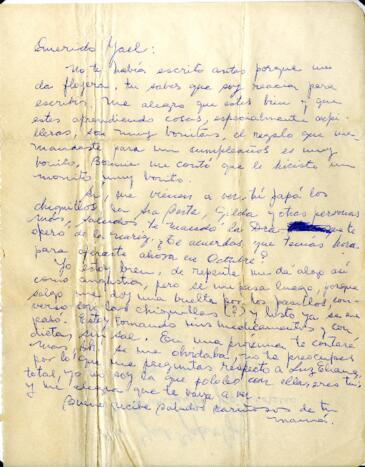 Querido Yael:
No te había escrito antes porque me
da flojera, tu sabes que soy reacia para
escribir. Me alegro que estes bien y que
estes aprendiendo cosas, especialmente arpi-
lleras, son muy bonitas, el regalo que me
mandaste para mi cumpleaños es muy
bonito, Bonnie me contó que le hiciste un
monito muy bonito.
Si, me vienen a ver, tú papá los
chiquillos, la Sra Berta, Gilda y otras personas
más, saludos te mandó la Dra que te
operó de la nariz, ¿Te acuerdas que tenías hora
para operarte ahora en Octubre?
Yo estoy bien, de repente me dá algo así
como angustia, pero se me pasa luego, porque
salgo me doy una vuelta por los pasillos con-
verso con las chiquillas (?) y listo ya se me
pasó. Estoy tomando mis medicamentos y con
dieta, sin sal. En una próxima te contaré
más. Oh! se me olvidaba, no te preocupes
por lo que me preguntas respecto a Luz Eliana,
total, yo no soy la que pololeo con ella, eres tú
y me alegra que te vaya a ver
Bueno recibe saludos cariñosos de tu
mamá.